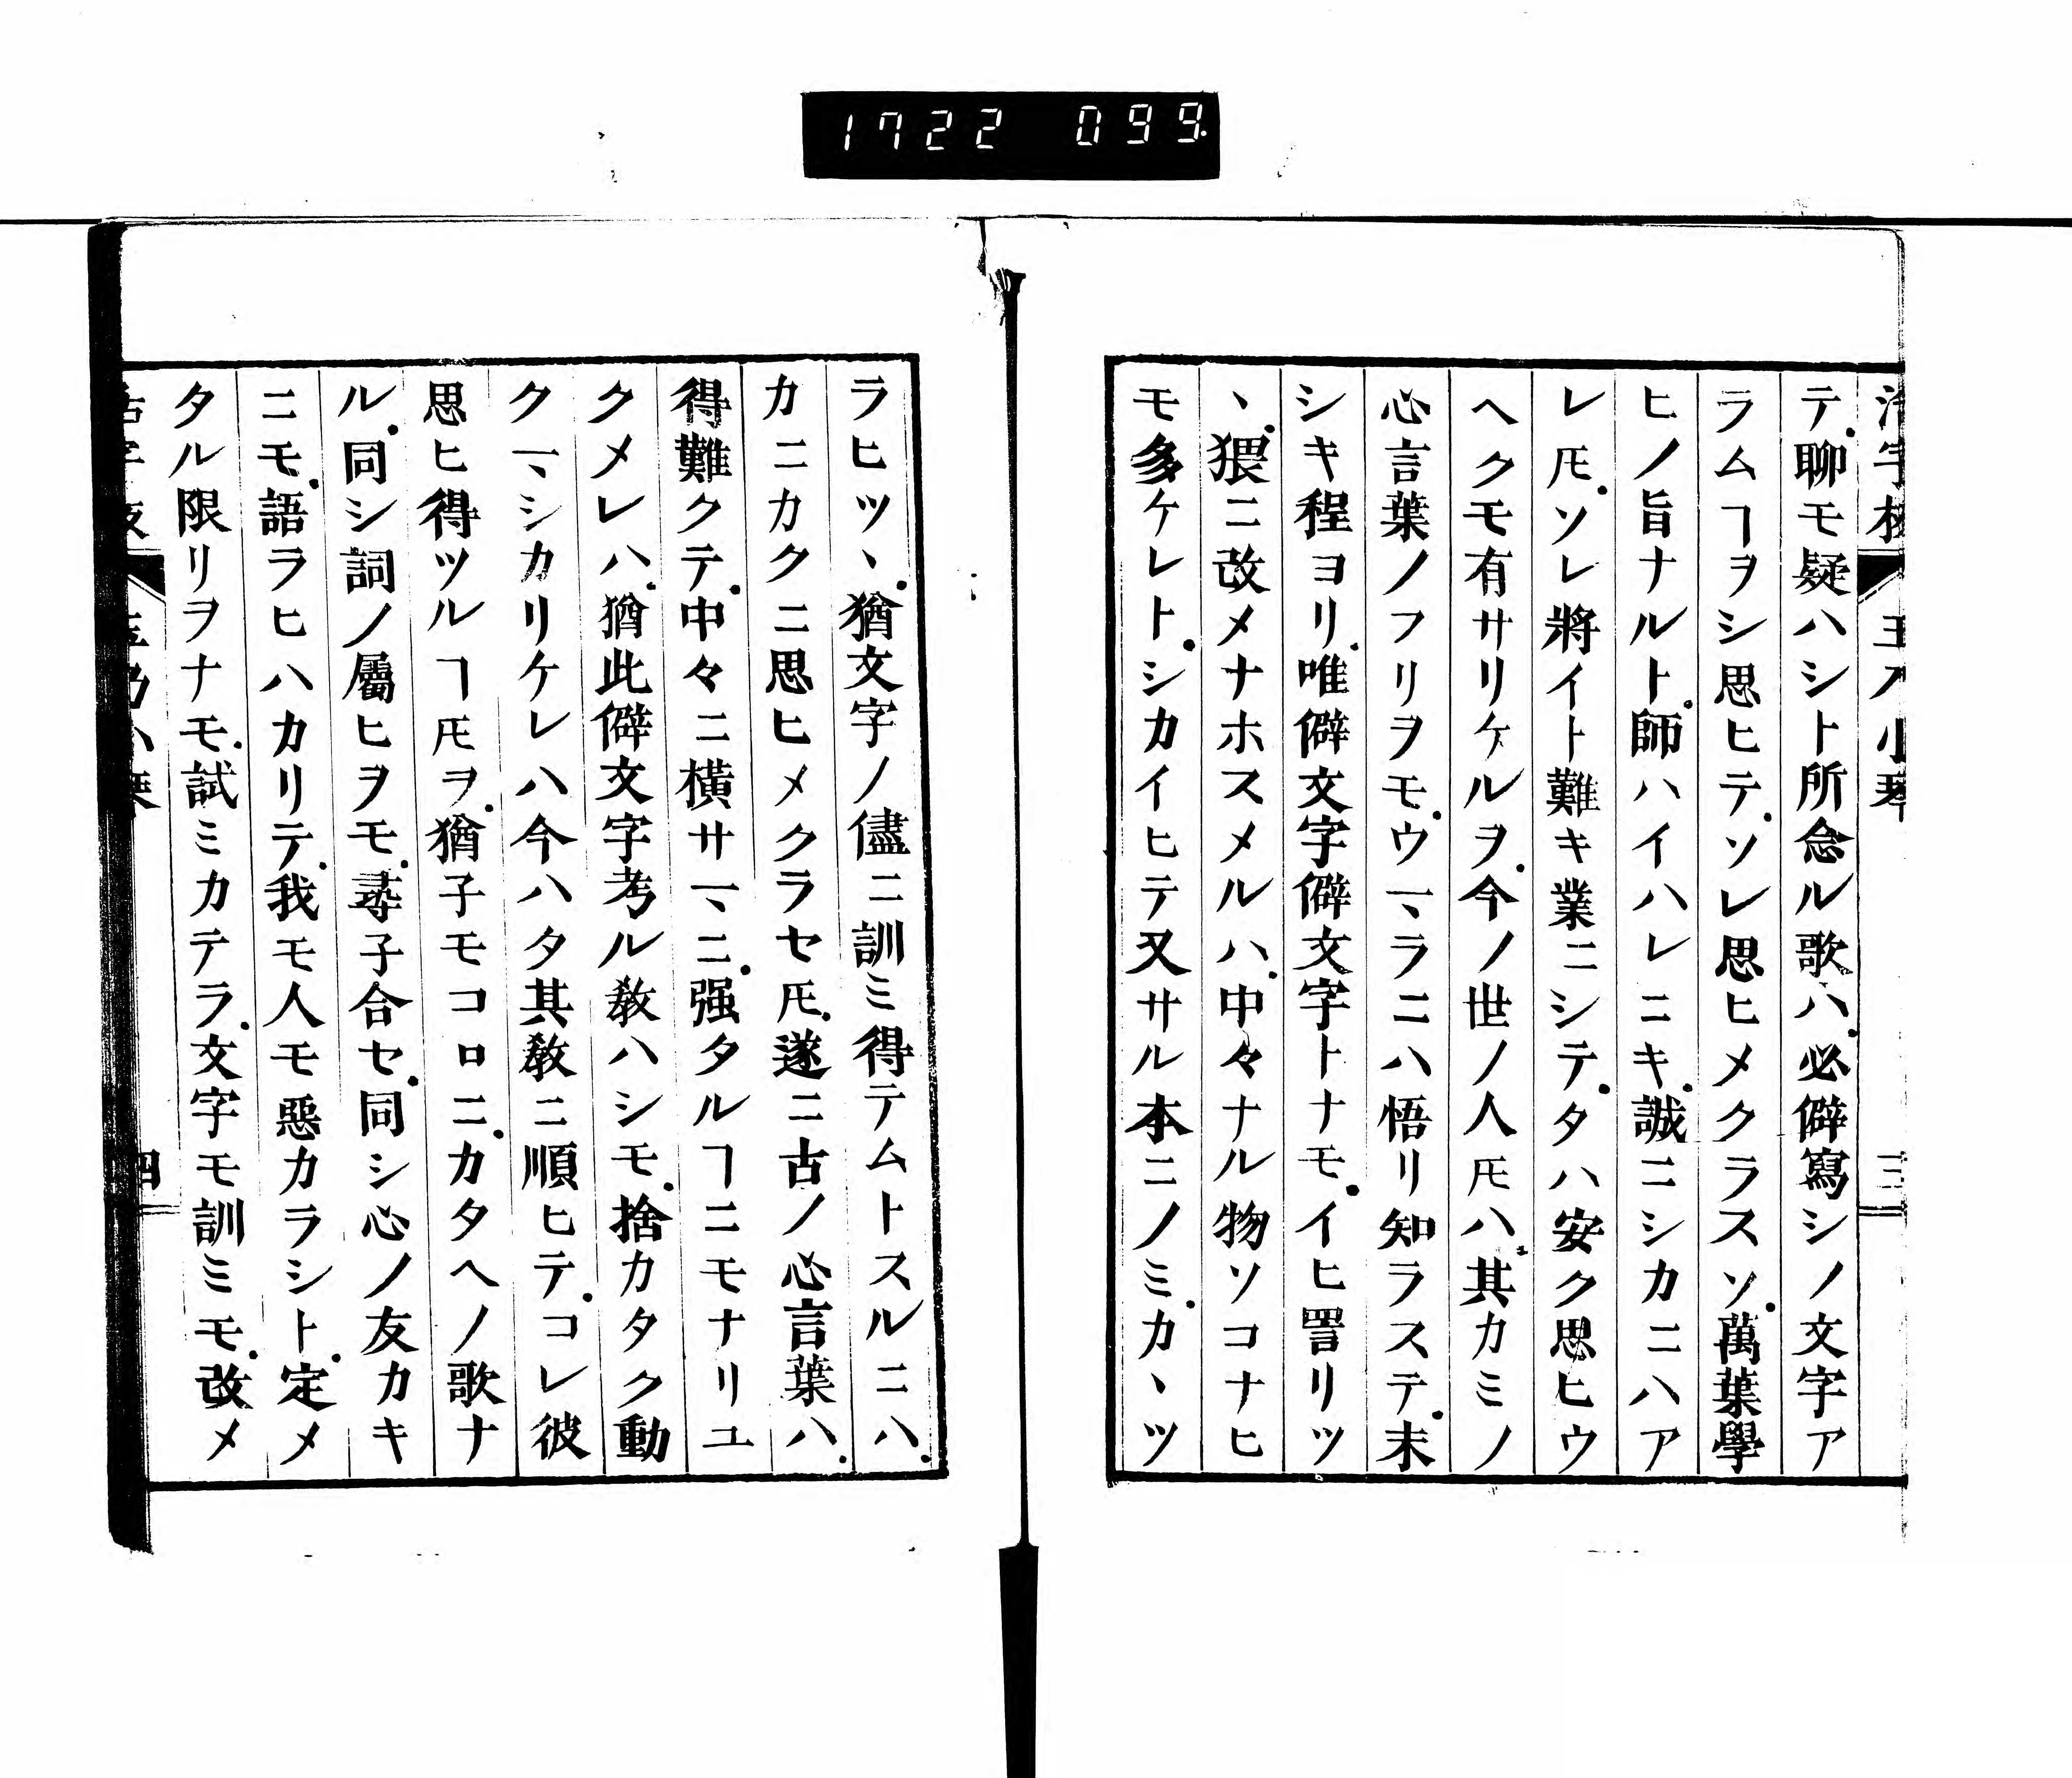 1722 099.
テ.聊モ疑ハシト所念ル歌ハ.必僻寫シノ文字ア
ラムヿヲシ思ヒテ.ソレ思ヒメクラスソ.萬葉學
ヒノ旨ナルト.師ハイハレニキ.誠ニシカニハア
レㇳモ.ソレ將イト難キ業ニシテ.タハ安ク思ヒウ
ヘクモ有サリケルヲ.今ノ世ノ人𪜈ハ.其カミノ
心言葉ノフリヲモ.ウマラニハ悟リ知ラステ.末
シキ程ヨリ.唯僻文字僻文字トナモ.イヒ詈リツ
ヽ.猥ニ改メナホスメルハ.中々ナル物ソコナヒ
モ多ケレト.シカイヒテ又サル本ニノミ.カヽツ
ラヒツヽ.猶文字ノ儘ニ訓ミ得テムトスルニハ.
カニカクニ思ヒメクラセ𪜈.遂ニ古ノ心言葉ハ.
得難クテ.中々ニ横サマニ.强タルヿニモナリユ
クメレハ.猶此僻文字考ル敎ハシモ.捨カタク動
クマシカリケレハ今ハタ其敎ニ順ヒテ.コレ彼
思ヒ得ツルヿ𪜈ヲ.猶子モコロニ.カタヘノ歌ナ
ル.同シ詞ノ屬ヒヲモ.尋子合セ.同シ心ノ友カキ
ニモ.語ラヒハカリテ.我モ人モ惡カラシト.定メ
タル限リヲナモ.試ミカテラ.文字モ訓ミモ.改メ
四